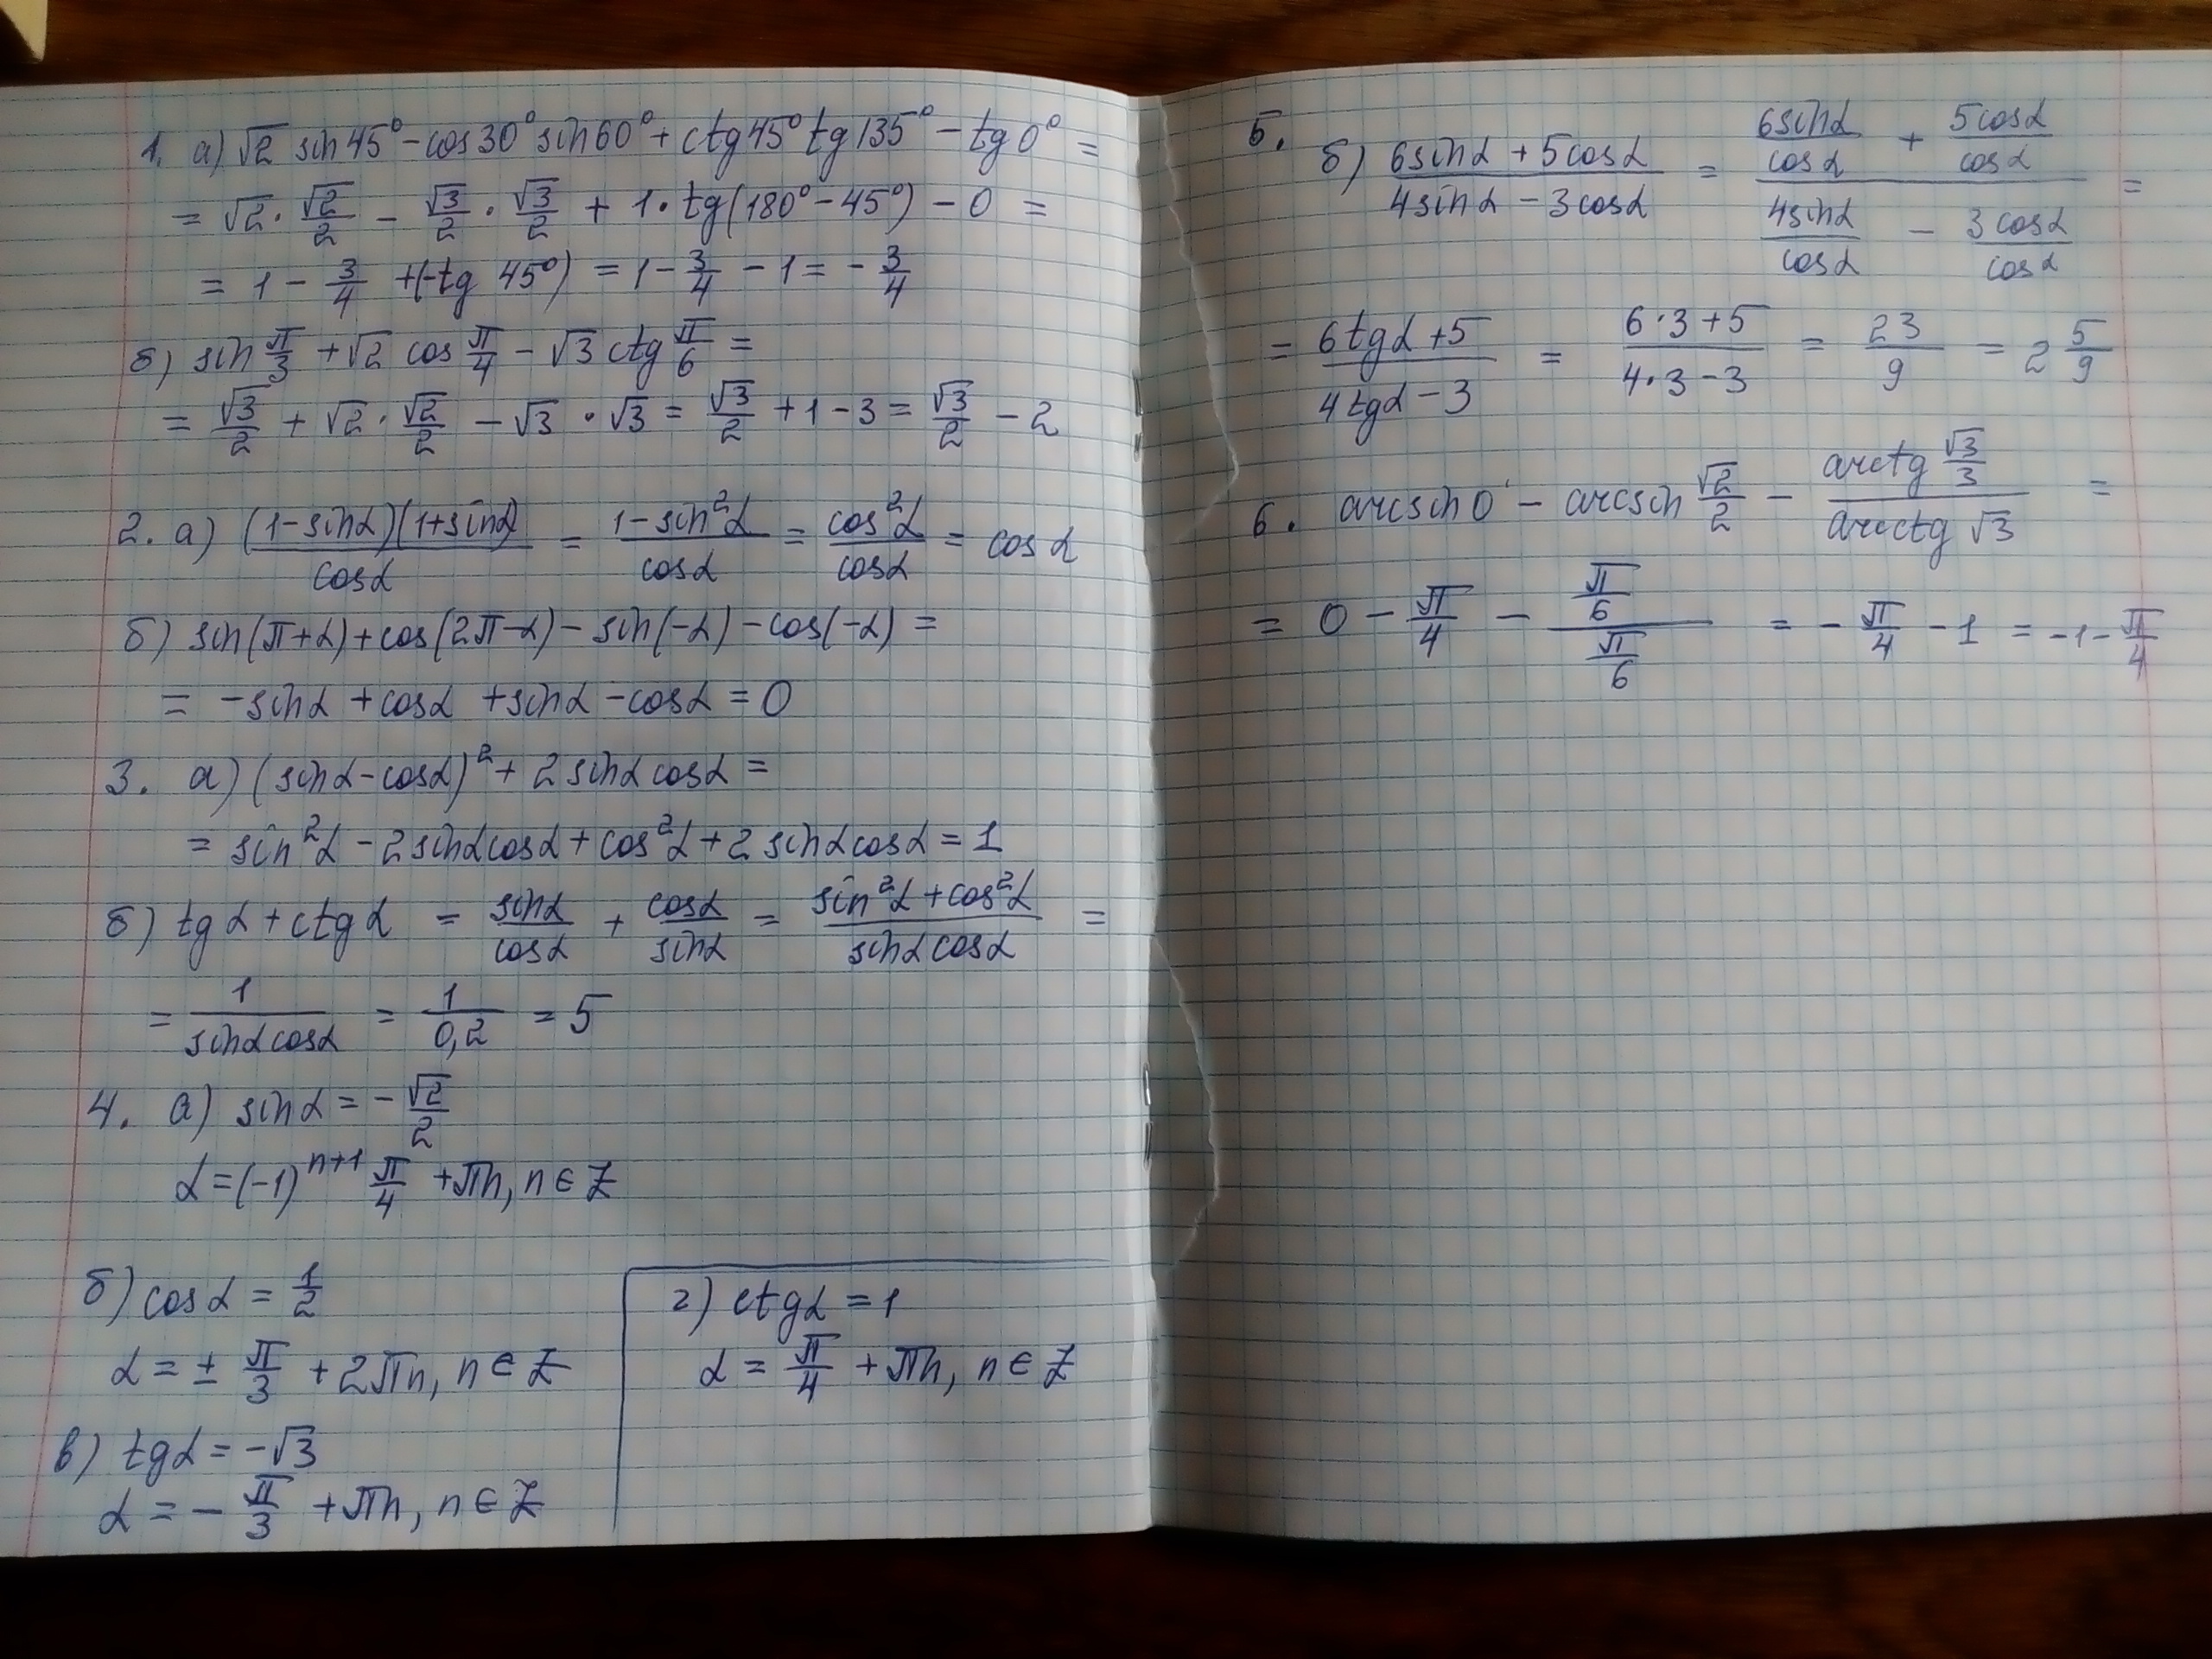 1. а) √2 sin45° - cos30° sin60° + ctg45° tg135° - tg0° =
= √2 · √2/2 - √3/2 · √3/2 + 1 · tg(180° - 45°) - 0 =
= 1 - 3/4 + (-tg 45°) = 1 - 3/4 - 1 = - 3/4
б) sin π/3 + √2 cos π/4 - √3 ctg π/6 =
= √3/2 + √2 · √2/2 - √3 · √3 = √3/2 + 1 - 3 = √3/2 - 2
2. а) (1-sinα)(1+sinα)/cosα = 1-sin²α/cosα = cos²α/cosα = cosα
б) sin(π+α) + cos(2π-α) - sin(-α) - cos(-α) =
= -sinα + cosα + sinα - cosα = 0
3. а) (sinα - cosα)² + 2sinαcosα =
= sin²α - 2sinαcosα + cos²α + 2sinαcosα = 1
б) tgα + ctgα = sinα/cosα + cosα/sinα = sin²α + cos²α/sinαcosα =
= 1/sinαcosα = 1/0,2 = 5
4. а) sinα = - √2/2
α = (-1)ⁿ⁺¹ π/4 + πn, n ∈ Z
б) cosα = 1/2
α = ± π/3 + 2πn, n ∈ Z
в) tgα = -√3
α = - π/3 + πn, n ∈ Z
г) ctgα = 1
α = π/4 + πn, n ∈ Z
5.
б) 6sinα + 5cosα/4sinα - 3cosα = 6sinα/cosα + 5cosα/cosα / 4sinα/cosα - 3cosα/cosα =
= 6tgα + 5/4tgα - 3 = 6·3+5/4·3-3 = 23/9 = 2 5/9
6. arcsin0 - arcsin √2/2 - arctg √3/3 / arcctg √3 =
= 0 - π/4 - π/6 / π/6 = - π/4 - 1 = -1 - π/4